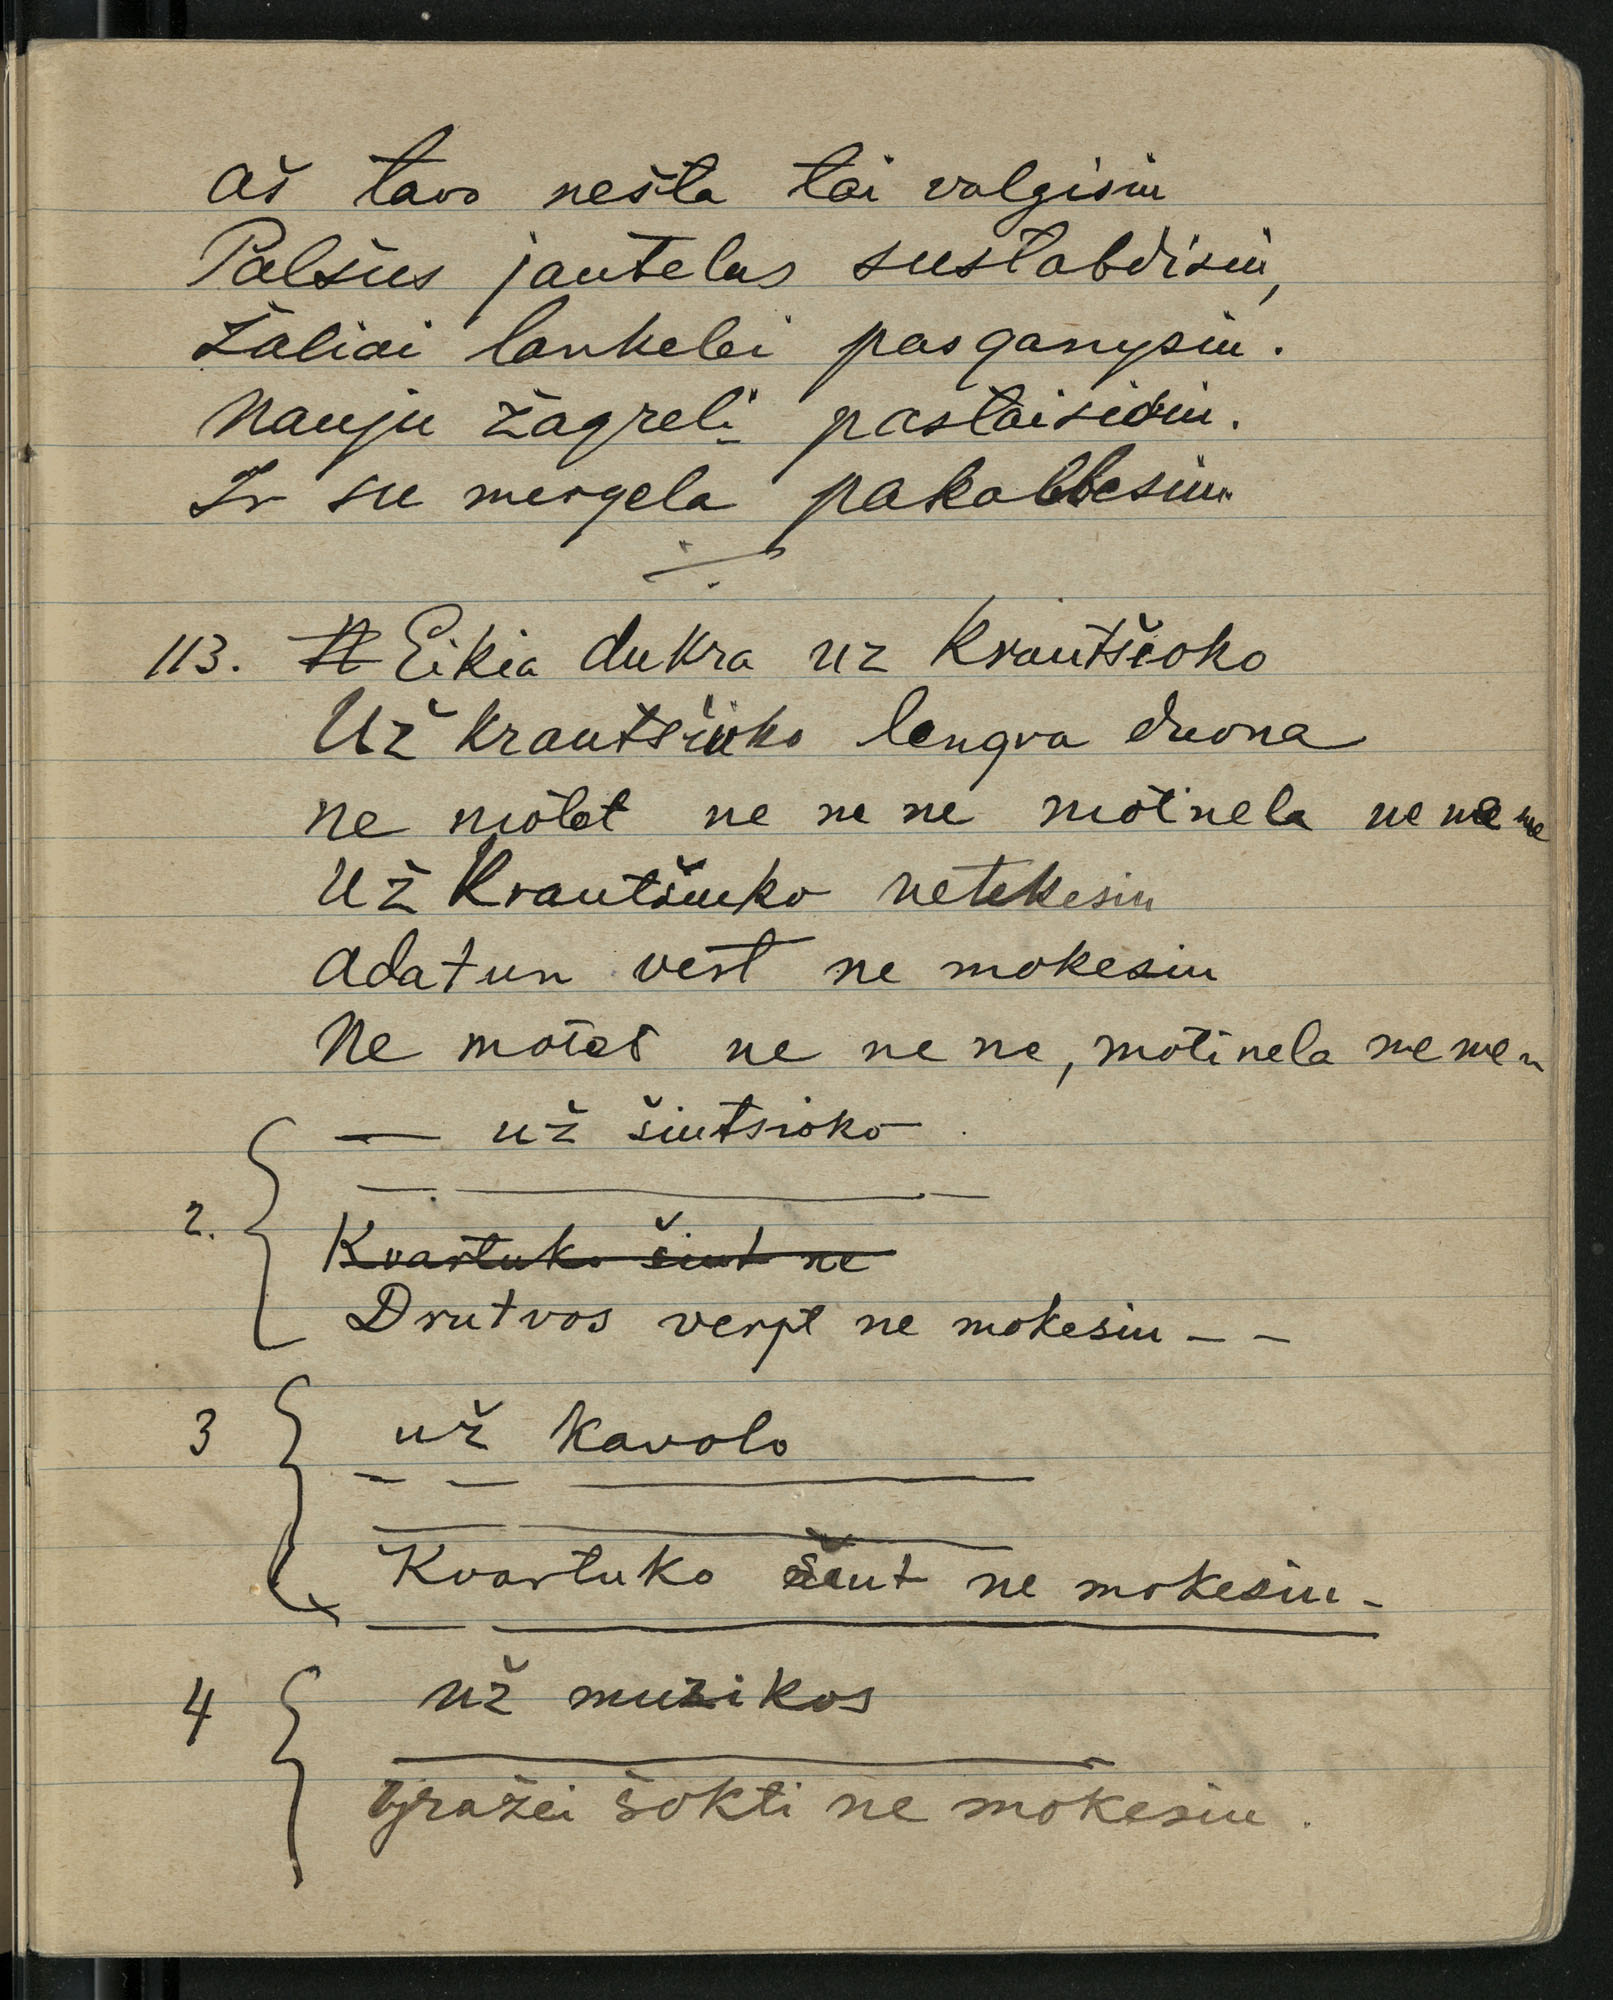 Aš tavo nešta tai valgisiu
Palšus jautelus sustabdisiu,
Žaliai lankelei pasganysiu.
Nauju žagreli pastaisisiu.
Ir su mergela pakalbesiu
113. Eikia dukra uz Krautšioko
Už Krautšiuko lengva duona
ne motet ne ne ne motinela ne ne ne
Už Krautšiuko netekesiu
Adatun vert ne mokesiu
Ne motet ne ne ne, motinela ne ne n
— už šiutsioko
2.
Kvartuko šiut ne
Drutvos verpt ne mokesiu – –
3 už kavolo
Kvartuko šiut ne mokesiu –
4 už muzikos
Gražei šokti ne mokesiu.